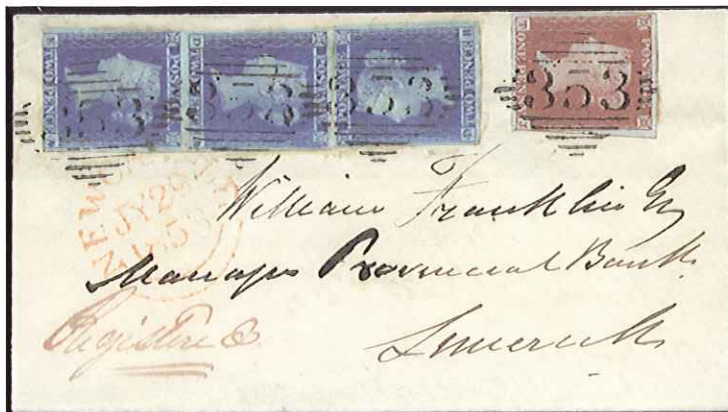 POSTAGE
TWO PENCE
POSTAGE
POSTAGE
TWO PENCE
POSTAGE
ONE PENNY
353
353
353
353
JY 29
William Franklin Esq
Manager Provincial Bank
Limerick
Registered